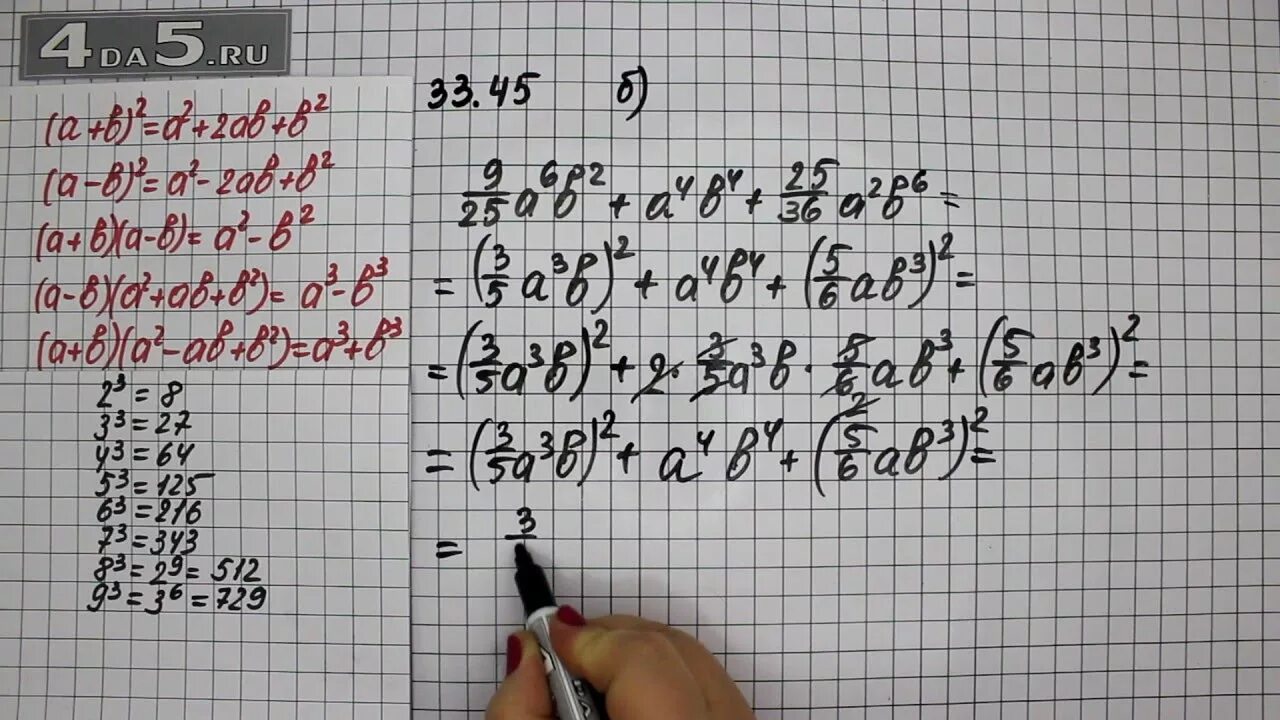 4DA5.RU
(a+в)²=a²+2aв+в²
(a-в)²=a²-2aв+в²
(a+в)(a-в)=a²-в²
(a-в)(a²+aв+в²)=a³-в³
(a+в)(a²-aв+в²)=a³+в³
2³=8
3³=27
4³=64
5³=125
6³=216
7³=343
8³=2⁹=512
9³=3⁶=729
33.45 б)
9/25 a⁶в² + a⁴в⁴ + 25/36 a²в⁶ =
= (3/5 a³в)² + a⁴в⁴ + (5/6 aв³)² =
= (3/5 a³в)² + 2 · 3/5 a³в · 5/6 aв³ + (5/6 aв³)² =
2
= (3/5 a³в)² + a⁴в⁴ + (5/6 aв³)² =
= 3